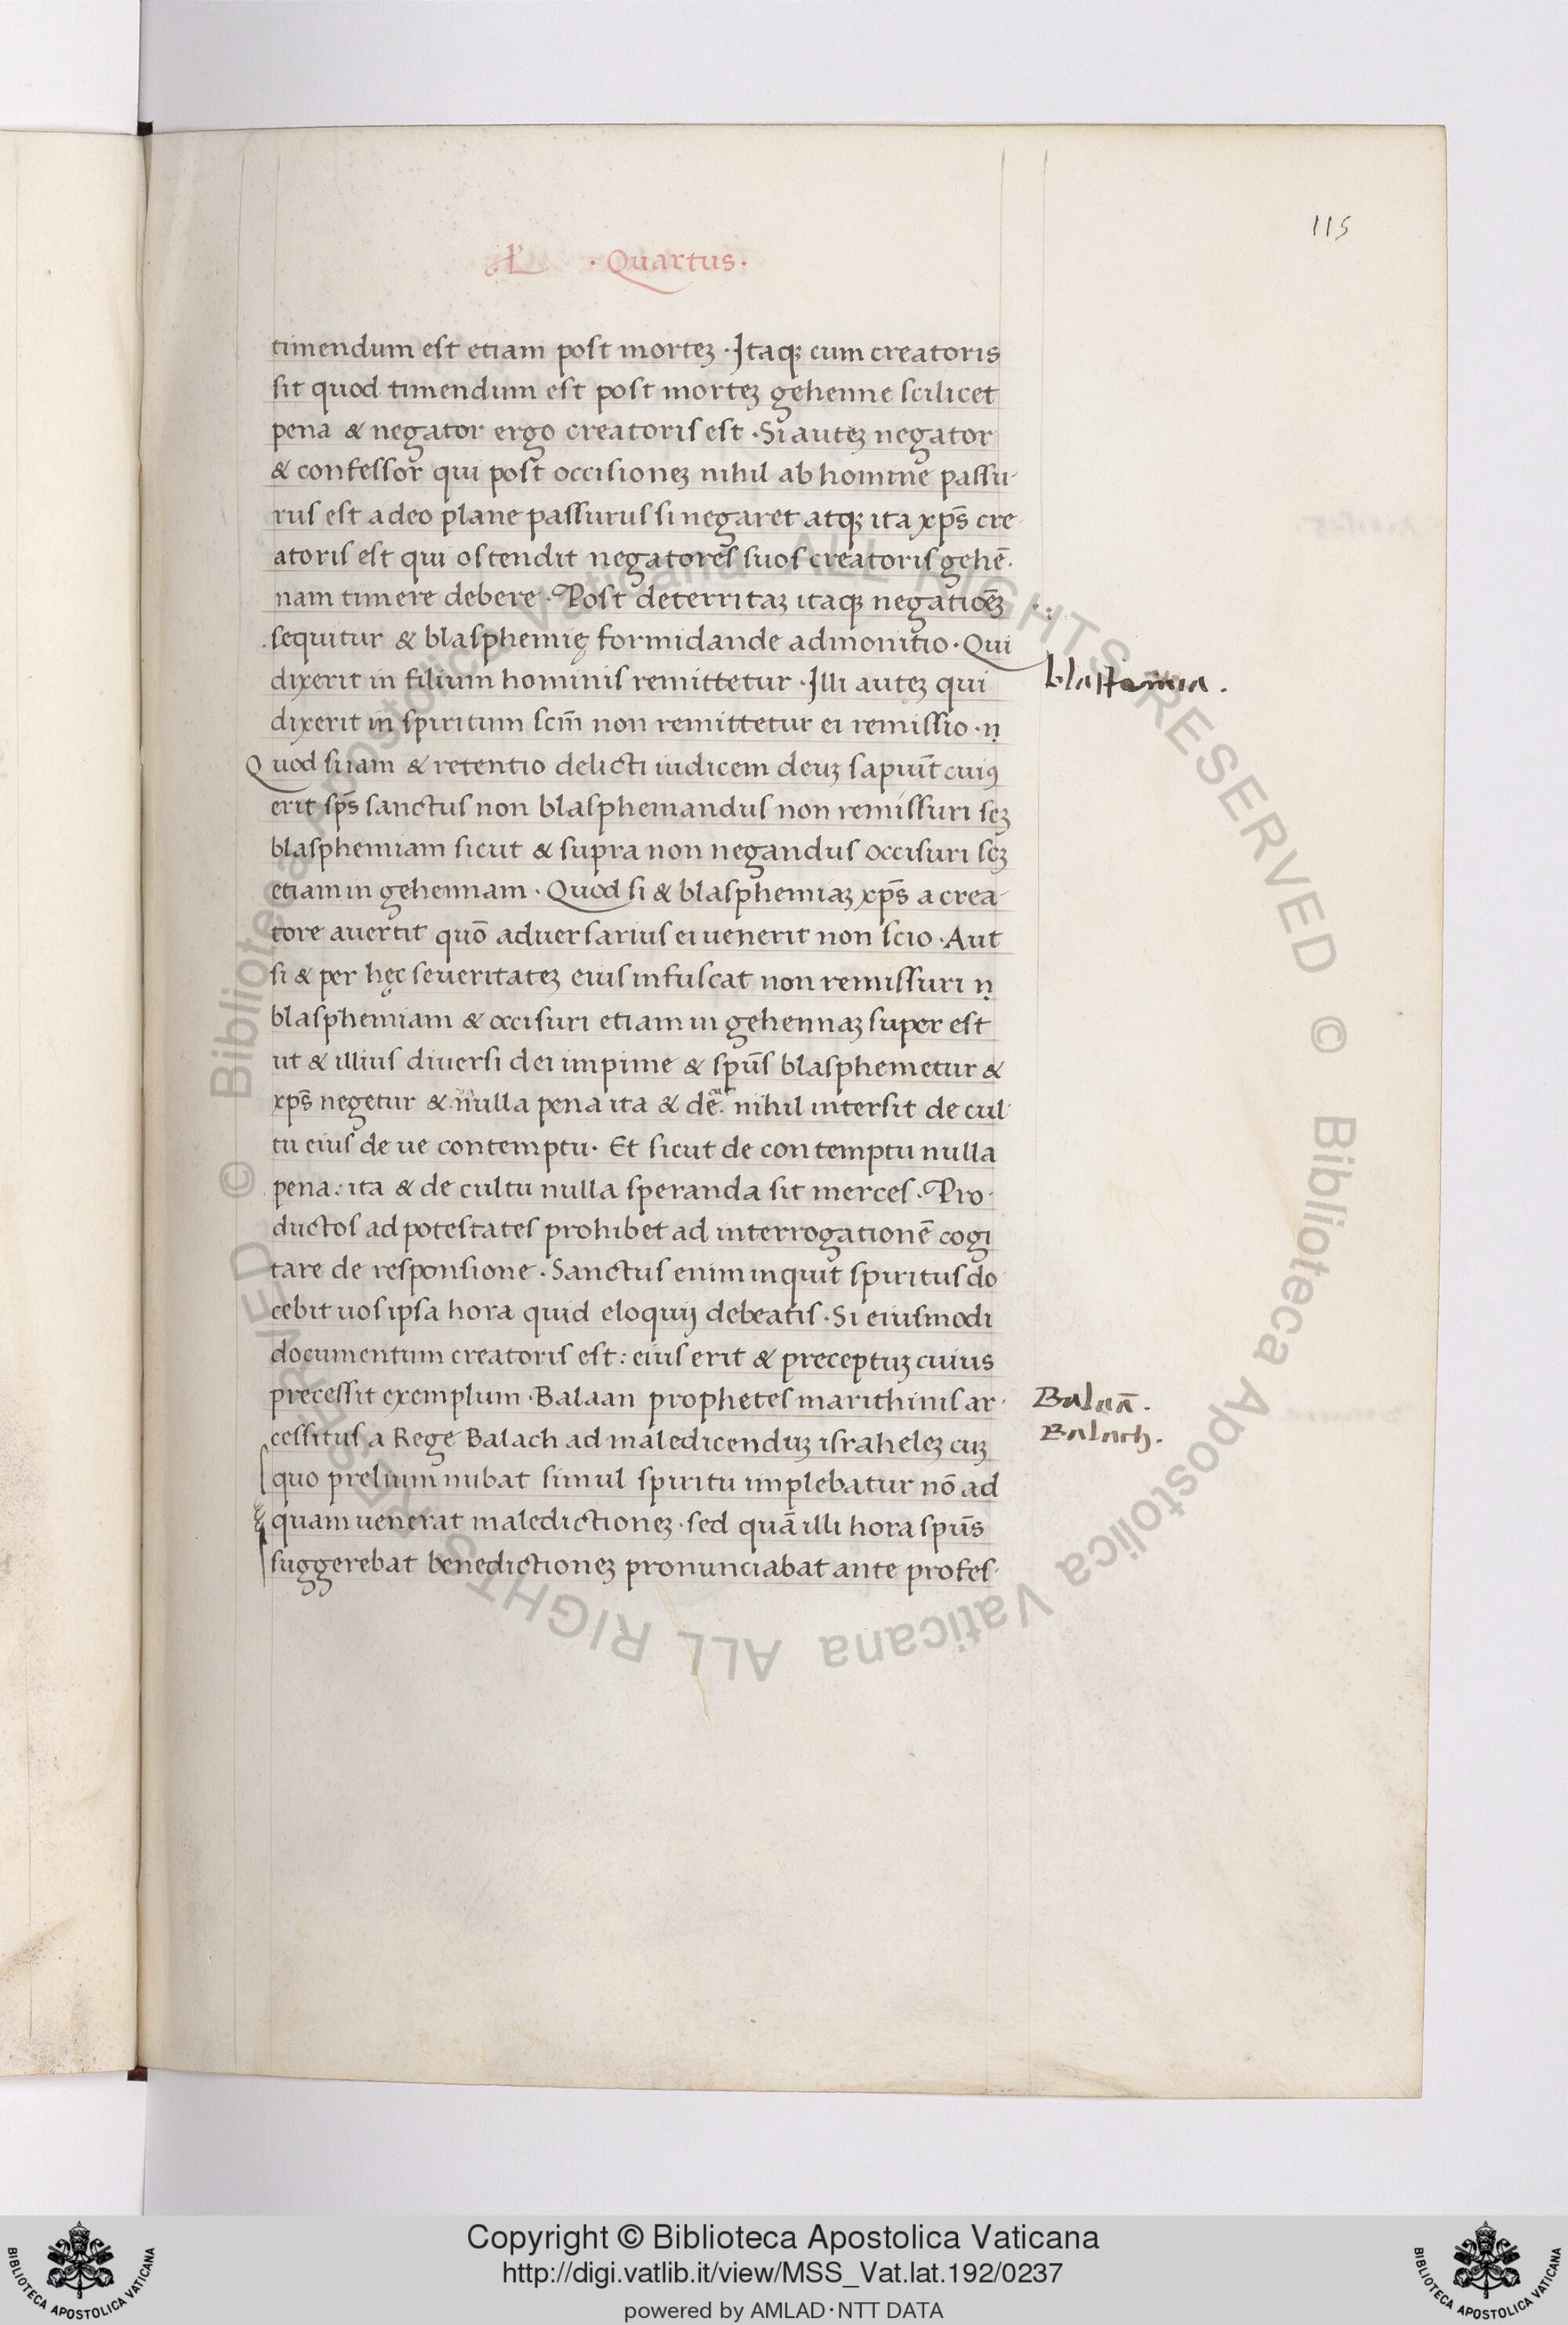 115
· Quartus ·
timendum est etiam post morteꝫ · Itaqꝫ cum creatoris
sit quod timendum est post morteꝫ gehenne scilicet
pena & negator ergo creatoris est · Si auteꝫ negator
& confessor qui post occisioneꝫ nihil ab homine passu-
rus est a deo plane passurus si negaret atqꝫ ita xp̄s cre-
atoris est qui ostendit negatores suos creatoris gehē-
nam timere debere · Post deterritaꝫ itaqꝫ negatiōeꝫ
sequitur & blasphemię formidande admonitio · Qui
dixerit in filium hominis remittetur · Illi auteꝫ qui
blasfemia .
dixerit in spiritum scm̄ non remittetur ei remissio · ṇ
Quod si iam & retentio delicti iudicem deuꝫ sapiūt cuiꝰ
erit sp̄s sanctus non blasphemandus non remissuri seꝫ
blasphemiam sicut & supra non negandus occisuri seꝫ
etiam in gehennam · Quod si & blasphemiaꝫ xp̄s a crea-
tore avertit quō adversarius ei uenerit non scio · Aut
si & per hęc severitateꝫ eius infuscat non remissuri ṇ
blasphemiam & occisuri etiam in gehennaꝫ super est
ut & illius diversi dei impime & spūs blasphemetur &
xp̄s negetur & nulla pena ita & dē nihil intersit de cul-
tu eius de ve contemptu · Et sicut de contemptu nulla
pena : ita & de cultu nulla speranda sit merces · Pro-
ductos ad potestates prohibet ad interrogationē cogi
tare de responsione · Sanctus enim inquit spiritus do
cebit uos ipsa hora quid eloquij debeatis · Si eiusmodi
documentum creatoris est : eius erit & preceptuꝫ cuius
precessit exemplum · Balaan prophetes marithinis ar-
Balaā .
cessitus a Rege Balach ad maledicenduꝫ israheleꝫ cuꝫ
Balach .
quo prelium nubat simul spiritu implebatur nō ad
quam uenerat maledictioneꝫ · sed quā illi hora spūs
suggerebat benedictioneꝫ pronunciabat ante profes-
© Biblioteca Apostolica Vaticana ALL RIGHTS RESERVED © Biblioteca Apostolica Vaticana ALL RIGHTS RESERVED
Copyright © Biblioteca Apostolica Vaticana
http://digi.vatlib.it/view/MSS_Vat.lat.192/0237
powered by AMLAD·NTT DATA
BIBLIOTECA APOSTOLICA VATICANA
BIBLIOTECA APOSTOLICA VATICANA